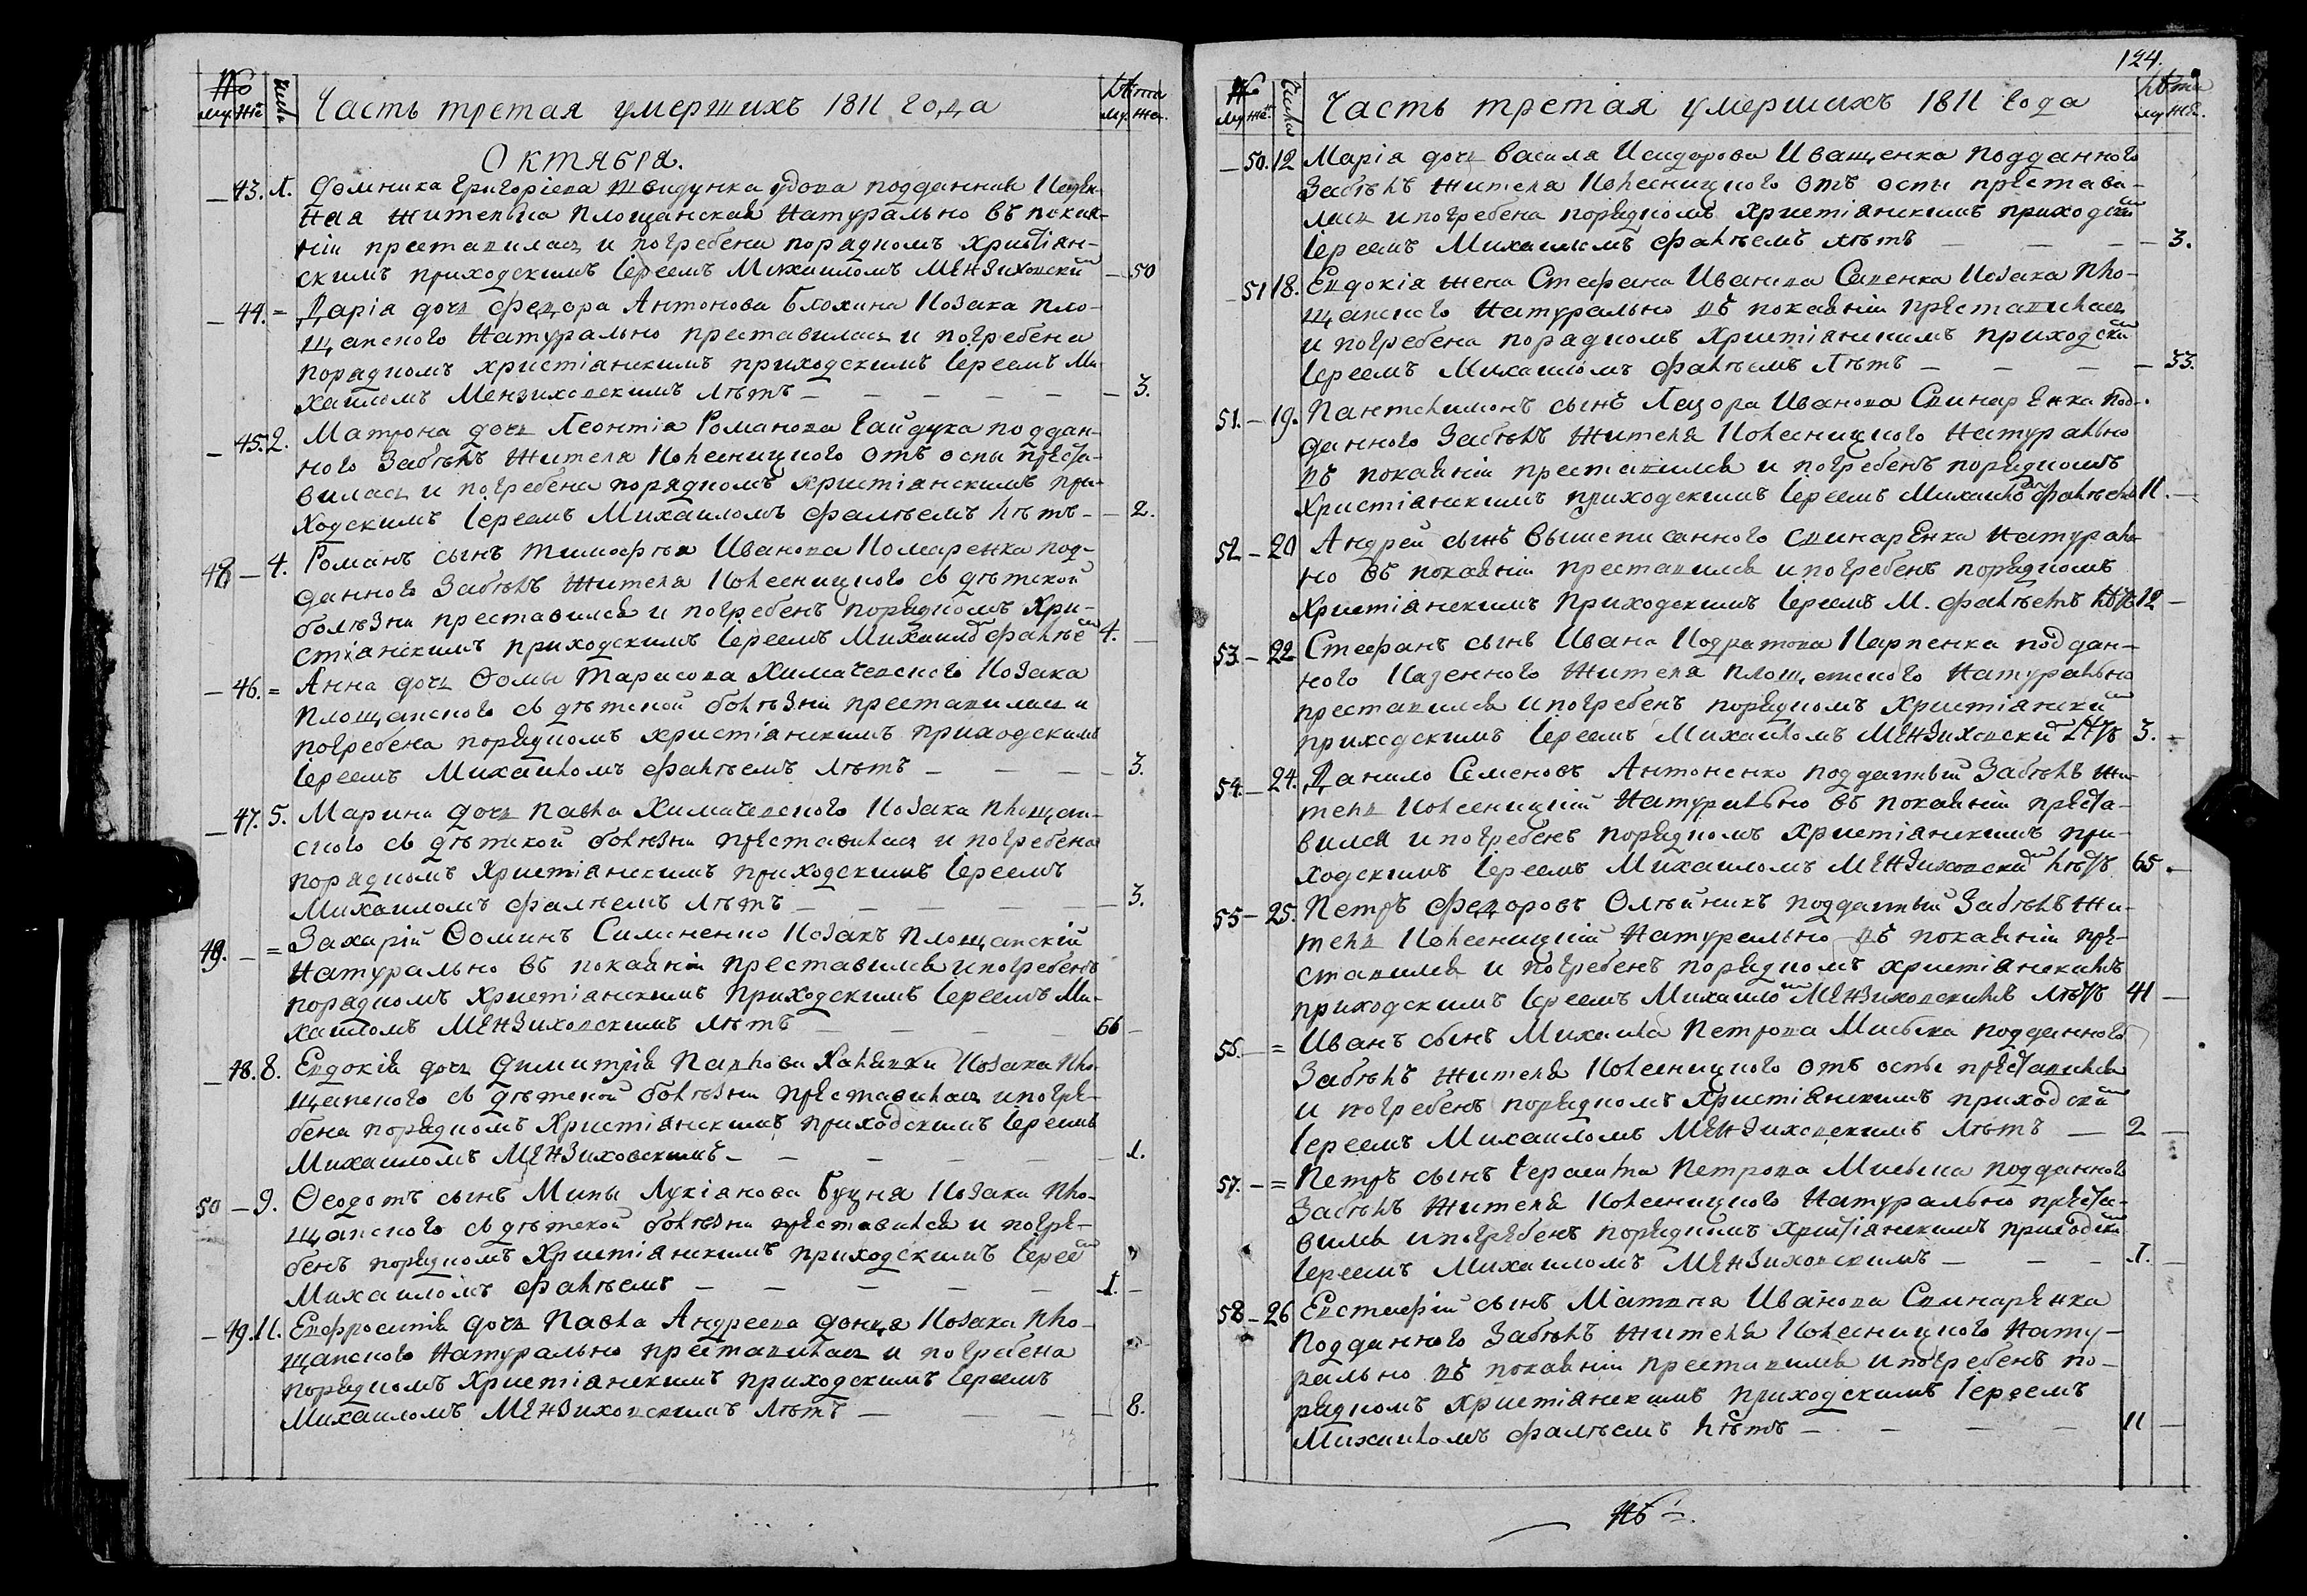 № Число Лѣта
му. же. Часть третая умершихъ 1811 года му. же.
Октября.
— 43. 1. Домника Григоріева удова подданная Казен-
ная жителька Площанская натурально въ покая-
ніи преставилась и погребена порядкомъ христіан-
скимъ приходскимъ Іереемъ Михаиломъ Мензиховским — 50
— 44. = Дарія дочь Федора Антонова Блохина Козака Пло-
щанского натурально преставилась и погребена
порядкомъ христіанскимъ приходскимъ Іереемъ Ми-
хаиломъ Мензиховскимъ лѣтъ — — — — — 3.
— 45. 2. Матрона дочь Леонтія Романова Гайдука поддан-
ного Забѣлъ жителя Колесницкого отъ оспы преста-
вилась и погребена порядкомъ христіанскимъ при-
ходскимъ Іереемъ Михаиломъ Фалѣемъ лѣтъ — — 2.
48 — 4. Романъ сынъ Тимофѣя Иванова Комаренка под-
данного Забѣлъ жителя Колесницкого съ дѣтской
болѣзни преставился и погребенъ порядкомъ хри-
стіанскимъ приходскимъ Іереемъ Михаилом Фалѣем 4. —
— 46. = Анна дочь Ѳомы Тарасова Химачевского Козака
Площанского съ дѣтской болѣзни преставилась и
погребена порядкомъ христіанскимъ приходскимъ
Іереемъ Михаиломъ Фалѣемъ лѣтъ — — — — 3.
— 47. 5. Марина дочь Павла Химачевского Козака Площан-
ского съ дѣтской болѣзни преставилась и погребена
порядкомъ христіанскимъ приходскимъ Іереемъ
Михаиломъ Фалѣемъ лѣтъ — — — — — 3.
49. — = Захарій Ѳоминъ Симоненко Козакъ Площанскій
натурально въ покаяніи преставился и погребенъ
порядкомъ христіанскимъ приходскимъ Іереемъ Ми-
хаиломъ Мензиховскимъ лѣтъ — — — — 66 —
— 48. 8. Евдокія дочь Димитрія Павлова Халявки Козака Пло-
щанского съ дѣтской болѣзни преставилась и погре-
бена порядкомъ христіанскимъ приходскимъ Іереемъ
Михаиломъ Мензиховскимъ — — — — — 1.
50 — 9. Ѳеодотъ сынъ Мины Лукіанова Буцня Козака Пло-
щанского съ дѣтской болѣзни преставился и погре-
бенъ порядкомъ христіанскимъ приходскимъ Іереем
Михаиломъ Фалѣемъ — — — — — 1. —
— 49. 11. Евфросинія дочь Павла Андреева Донця Козака Пло-
щанского натурально преставилась и погребена
порядкомъ христіанскимъ приходскимъ Іереемъ
Михаиломъ Мензиховскимъ лѣтъ — — — — 8.
124.
№ Число Лѣта
му же. Часть третая умершихъ 1811 года му же.
— 50. 12 Марія дочь Василя Исидорова Иващенка подданного
Забѣлъ жителя Колесницкого отъ оспы престави-
лась и погребена порядкомъ христіанскимъ приходским
Іереемъ Михаиломъ Фалѣемъ лѣтъ — — — — 3.
— 51 18. Евдокія жена Стефана Иванова Савенка Козака Пло-
щанского натурально въ покаяніи преставилась
и погребена порядкомъ христіанскимъ приходским
Іереемъ Михаиломъ Фалѣемъ лѣтъ — — — — 33.
51. — 19. Пантелимонъ сынъ Лазора Иванова Свинаренка под-
данного Забѣлъ жителя Колесницкого натурально
въ покаяніи преставился и погребенъ порядкомъ
христіанскимъ приходскимъ Іереемъ Михаилом Фалѣемъ 11. —
52 — 20 Андрей сынъ вышеписанного Свинаренка натураль-
но въ покаяніи преставился и погребенъ порядкомъ
христіанскимъ приходскимъ Іереемъ М. Фалѣемъ лѣтъ 12 —
53. — 22 Стефанъ сынъ Ивана Кодратова Карпенка поддан-
ного Казенного жителя Площанского натурально
преставился и погребенъ порядкомъ христіанским
приходскимъ Іереемъ Михаиломъ Мензиховским лѣтъ 3. —
54. — 24. Данило Семеновъ Антоненко подданный Забѣлъ жи-
тель Колесницкій натурально въ покаяніи преста-
вился и погребенъ порядкомъ христіанскимъ при-
ходскимъ Іереемъ Михаиломъ Мензиховским лѣтъ 65. —
55 — 25. Петръ Федоровъ Олѣйникъ подданный Забѣлъ жи-
тель Колесницкій натурально въ покаяніи пре-
ставился и погребенъ порядкомъ христіанскимъ
приходскимъ Іереемъ Михаилом Мензиховскимъ лѣтъ 41 —
56. — = Иванъ сынъ Михаила Петрова подданного
Забѣлъ жителя Колесницкого отъ оспы преставился
и погребенъ порядкомъ христіанскимъ приходским
Іереемъ Михаиломъ Мензиховскимъ лѣтъ — 2 —
57. — = Петръ сынъ Герасима Петрова подданного
Забѣлъ жителя Колесницкого натурально преста-
вился и погребенъ порядкомъ христіанскимъ приходским
Іереемъ Михаиломъ Мензиховскимъ — — — 1. —
58 — 26 Евстафій сынъ Матвея Иванова Свинаренка
подданного Забѣлъ жителя Колесницкого нату-
рально въ покаяніи преставился и погребенъ по-
рядкомъ христіанскимъ приходскимъ Іереемъ
Михаиломъ Фалѣемъ лѣтъ — — — — 11 —